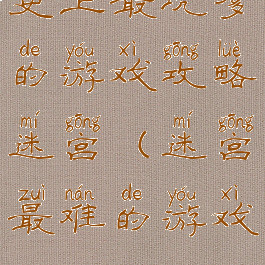 史上最坑爹
de yóu xì gōng lüè
的游戏攻略
mí gōng mí gōng
迷宫(迷宫
zuì nán de yóu xì
最难的游戏